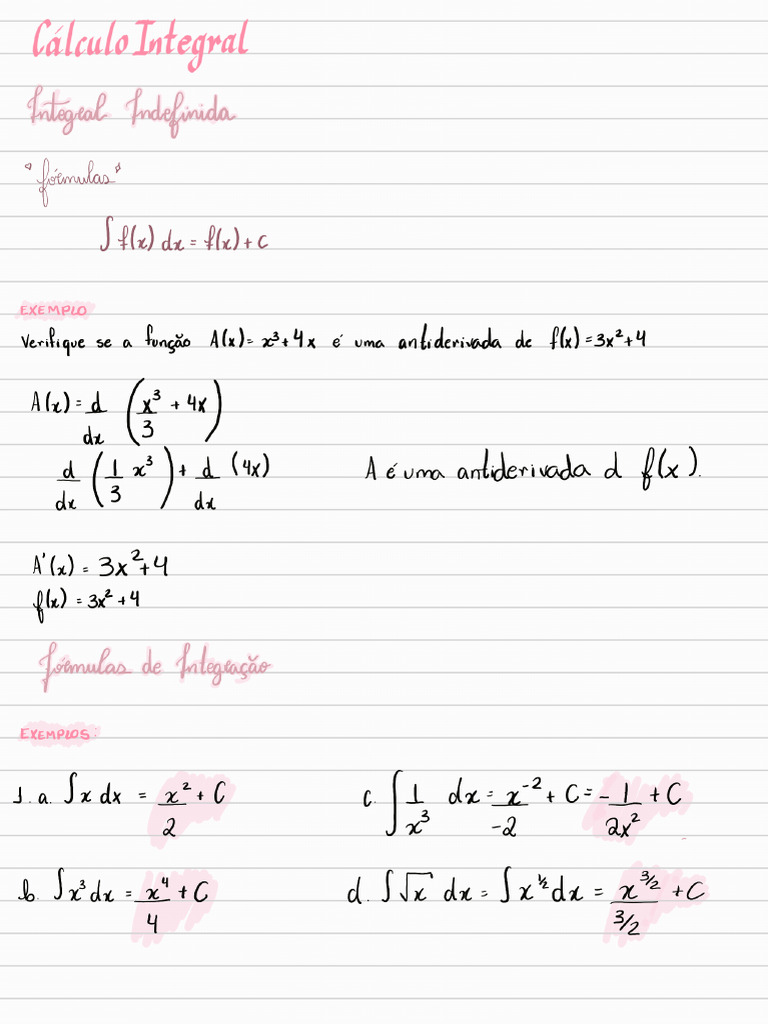 Cálculo Integral
Integral Indefinida
"fórmulas"
∫ f(x) dx = f(x) + C
EXEMPLO
Verifique se a função A(x) = x³ + 4x é uma antiderivada de f(x) = 3x² + 4
A(x) = d/dx (x³/3 + 4x)
d/dx (1/3 x³) + d/dx (4x)
A é uma antiderivada d f(x).
A'(x) = 3x² + 4
f(x) = 3x² + 4
fórmulas de Integração
EXEMPLOS:
1. a. ∫ x dx = x²/2 + C
c. ∫ 1/x³ dx = x⁻²/-2 + C = - 1/2x² + C
b. ∫ x³ dx = x⁴/4 + C
d. ∫ √x dx = ∫ x^½ dx = x^3/2 / 3/2 + C